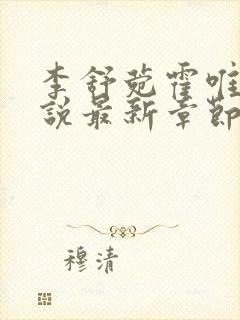 李舒菀霍唯
說最新章節
穆清